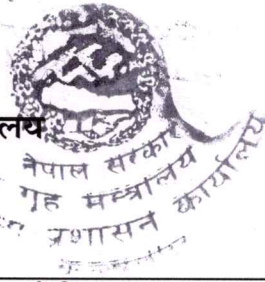 लय
नेपाल सरकार
गृह मन्त्रालय
प्रशासन कार्यालय